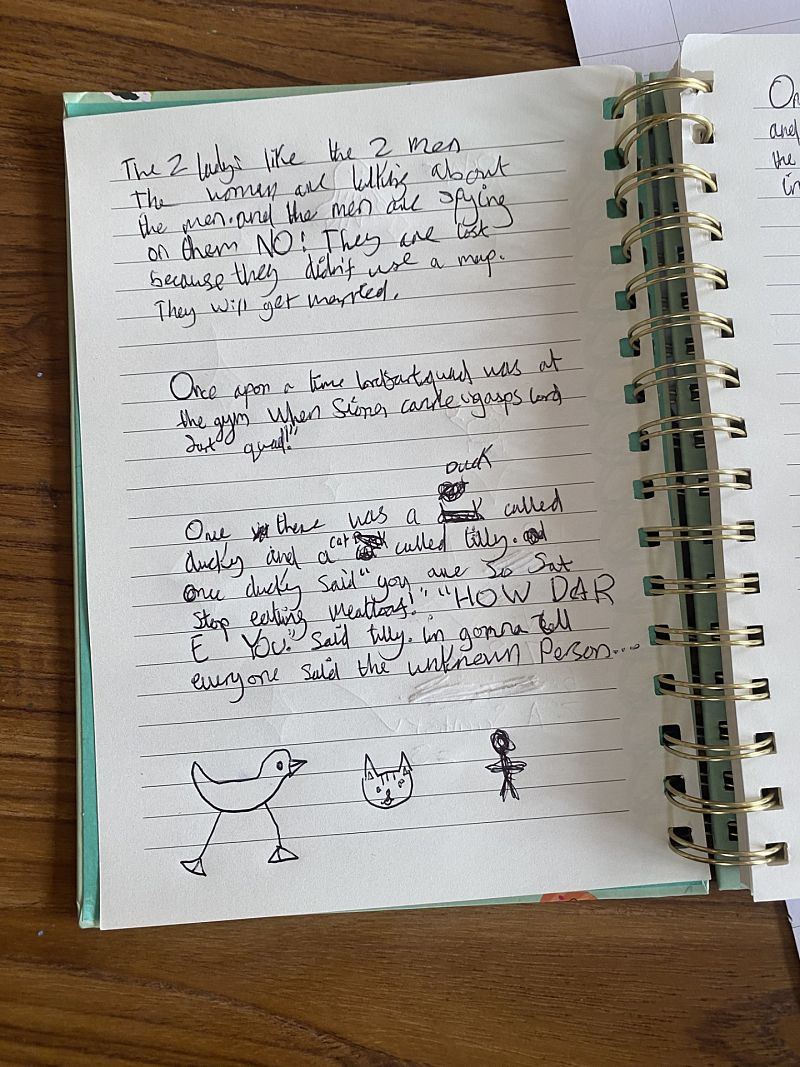 The 2 ladys like the 2 men
the women are talking about
the men. and the men are spying
on them NO! They are lost
because they didn't use a map.
They will get married.
Once apon a time lordfartquad was at
the gym when Siona candle gasps lord
fart quad!"
Duck
One there was a called
ducky and a cat called tilly.
one ducky said "you are so fat
stop eating meatloaf!" "HOW DAR
E YOU." said tilly. im gonna tell
everyone said the unknown Person...
On
and
the
in